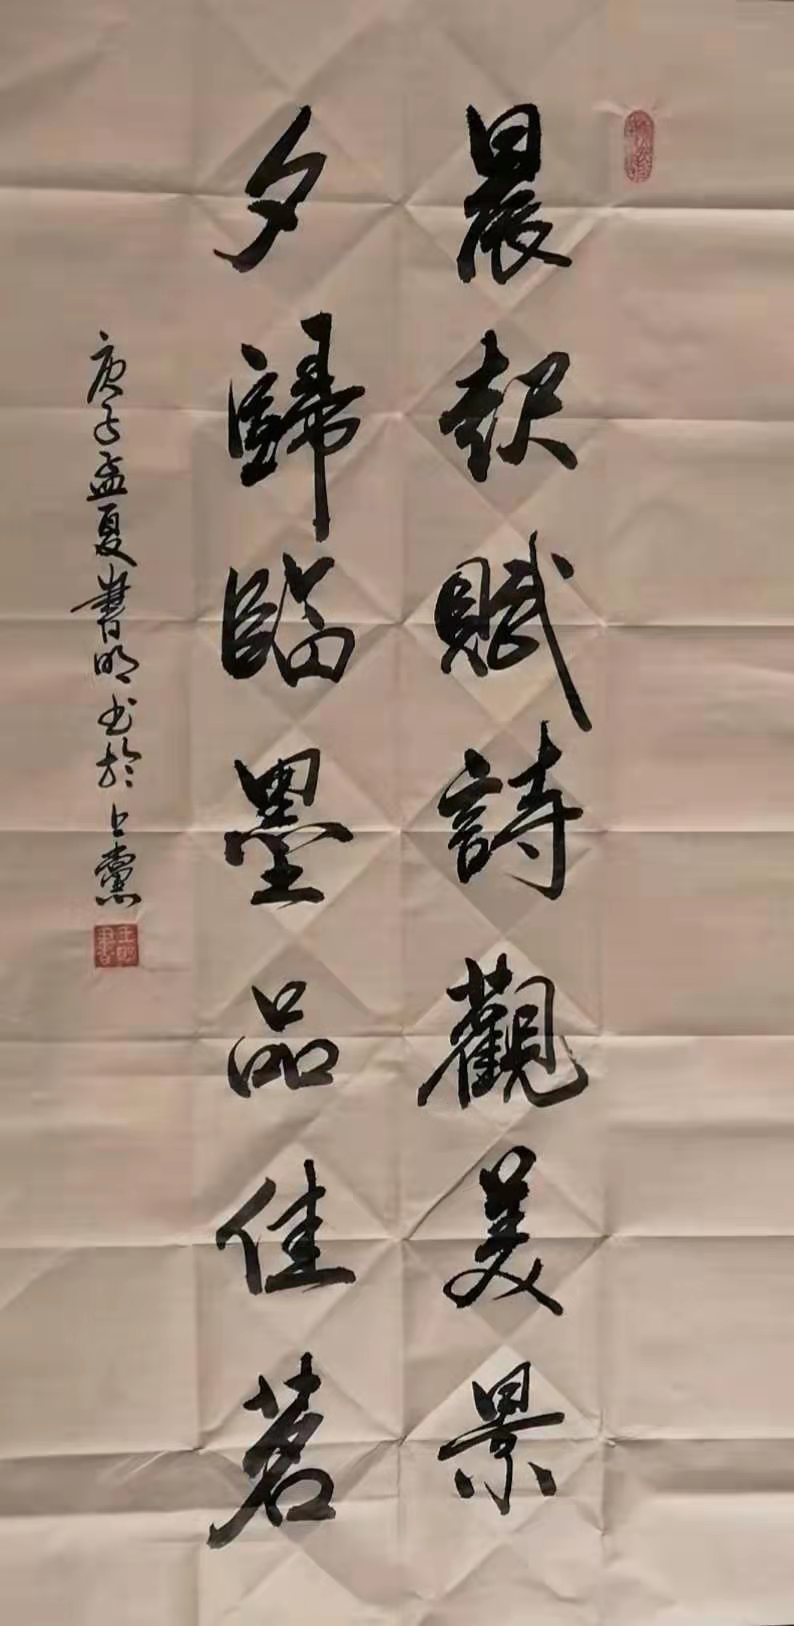 晨起賦詩觀美景
夕歸臨墨品佳茗
庚子孟夏書明书於上黨